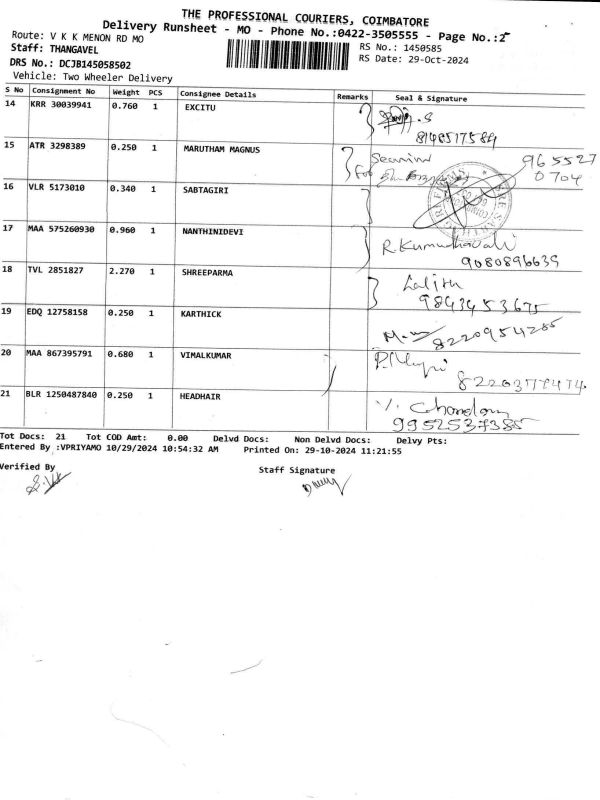 THE PROFESSIONAL COURIERS, COIMBATORE
Delivery Runsheet - MO - Phone No.:0422-3505555 - Page No.:2
Route: V K K MENON RD MO
RS No.: 1450585
Staff: THANGAVEL
RS Date: 29-Oct-2024
DRS No.: DCJB145058502
Vehicle: Two Wheeler Delivery
S No Consignment No Weight PCS Consignee Details Remarks Seal & Signature
14 KRR 30039941 0.760 1 EXCITU
15 ATR 3298389 0.250 1 MARUTHAM MAGNUS 965527
0704
16 VLR 5173010 0.340 1 SABTAGIRI
17 MAA 575260930 0.960 1 NANTHINIDEVI
9080896639
18 TVL 2851827 2.270 1 SHREEPARMA Lalitha
9843453675
19 EDQ 12758158 0.250 1 KARTHICK
8220954285
20 MAA 867395791 0.680 1 VIMALKUMAR
8220377474
21 BLR 1250487840 0.250 1 HEADHAIR
9952537385
Tot Docs: 21 Tot COD Amt: 0.00 Delvd Docs: Non Delvd Docs: Delvy Pts:
Entered By :VPRIYAMO 10/29/2024 10:54:32 AM Printed On: 29-10-2024 11:21:55
Verified By
Staff Signature